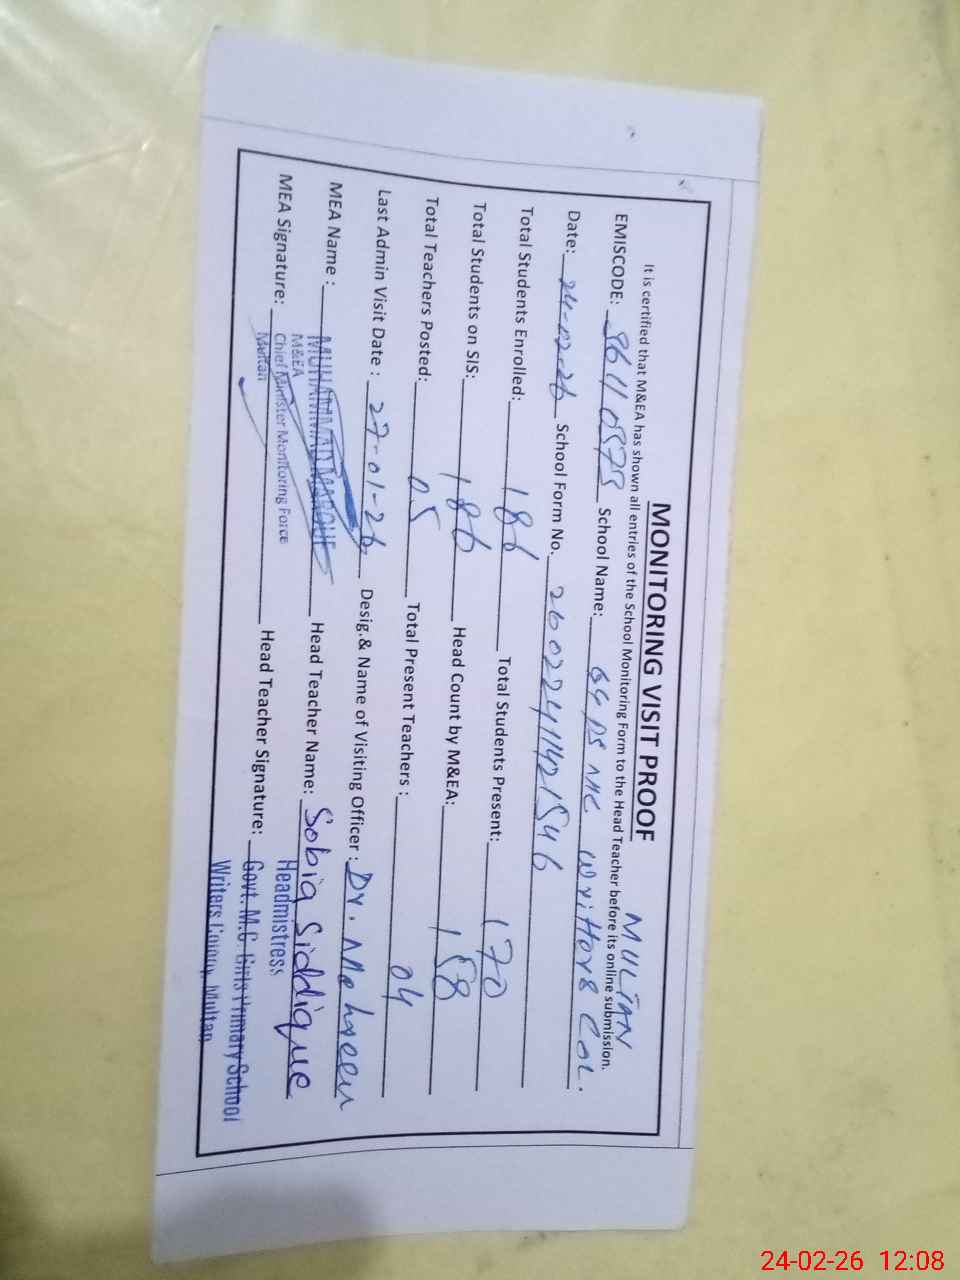 MONITORING VISIT PROOF
MULTAN
It is certified that M&EA has shown all entries of the School Monitoring Form to the Head Teacher before its online submission.
EMISCODE: 36110573 School Name: GG PS MC Writters Col.
Date: 24-02-26 School Form No. 26022411421546
Total Students Enrolled: 186 Total Students Present: 170
Total Students on SIS: 186 Head Count by M&EA: 158
Total Teachers Posted: 05 Total Present Teachers : 04
Last Admin Visit Date : 27-01-26 Desig.& Name of Visiting Officer : Dr.
MEA Name : MUHAMMAD MAROUF Head Teacher Name: Sobia Siddique
M&EA
Chief Minister Monitoring Force
Multan
MEA Signature: Head Teacher Signature:
Headmistress
Govt. M.C. Girls Primary School
Writers Colony, Multan
24-02-26 12:08